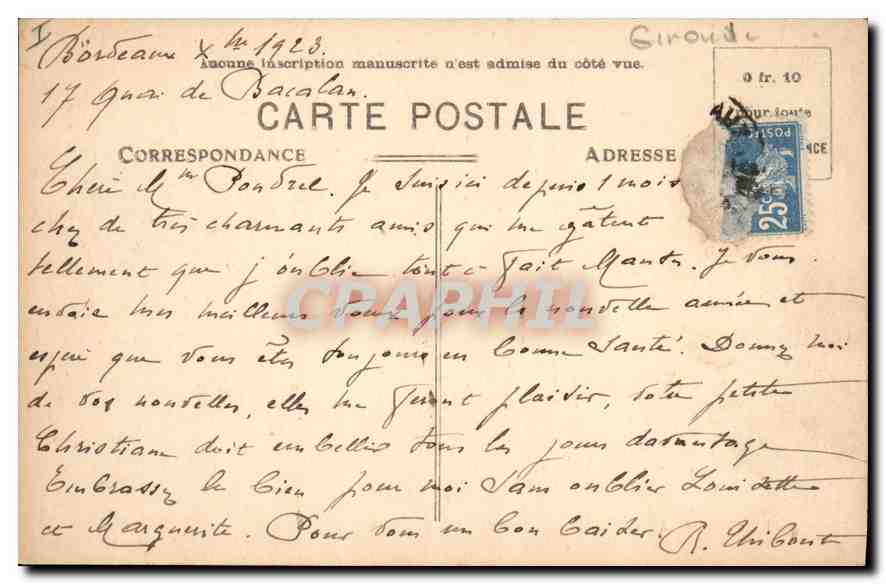 I
Bordeaux Xbre 1923.
Gironde
Aucune inscription manuscrite n'est admise du côté vue.
17 Quai de Bacalan.
0 fr. 10
pour toute
CARTE POSTALE
CORRESPONDANCE
ADRESSE
POSTES
25c
Chère Mme Pondrel. Je suis ici depuis 1 mois
chez de très charmants amis qui me gâtent
tellement que j'oublie tout à fait Mantes. Je vous
envoie mes meilleurs vœux pour la nouvelle année et
espère que vous êtes toujours en bonne santé. Donnez moi
de vos nouvelles, elles me feront plaisir, votre petite
Christiane doit embellir tous les jours davantage
Embrassez la bien pour moi sans oublier Louisette
et Marguerite. Pour vous un bon baiser. R. Thibout
CPAPHIL